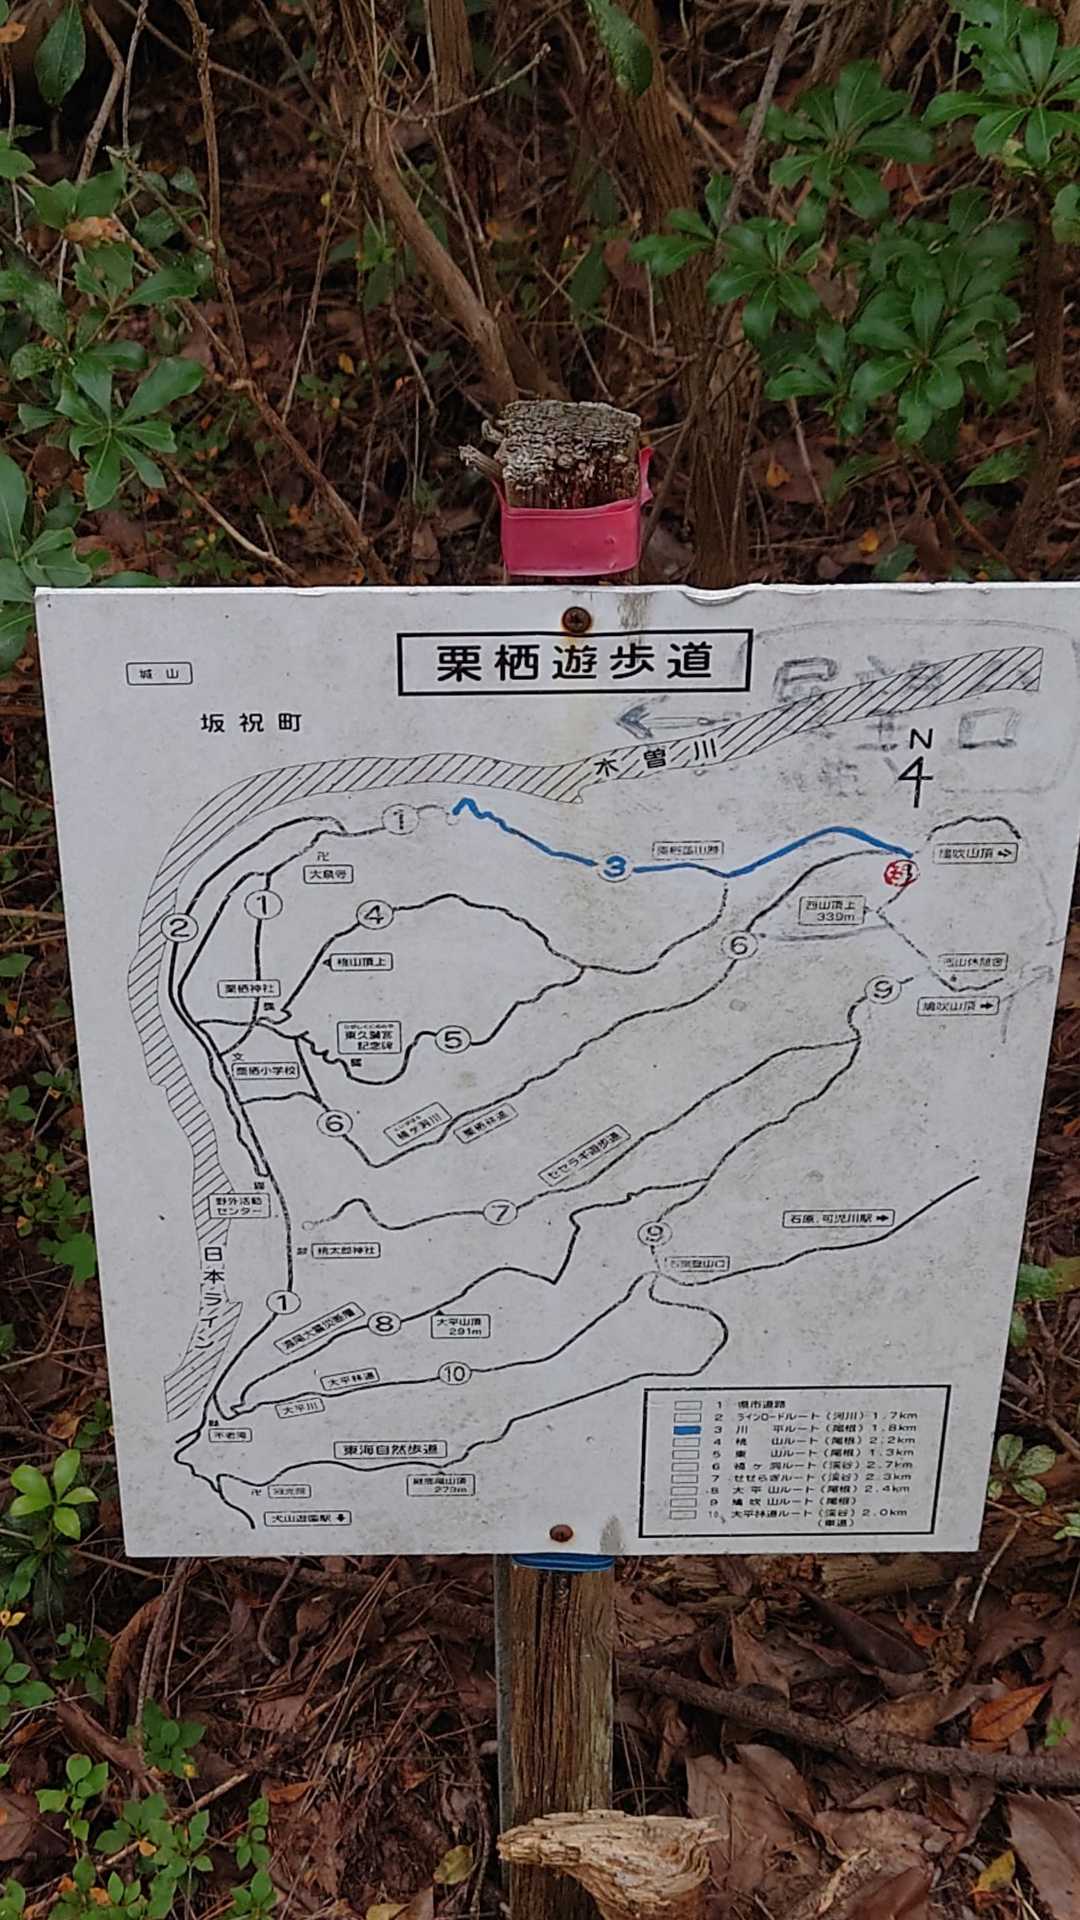 栗栖遊歩道
城山
坂祝町
木曽川
N
1
3
大泉寺
鳩吹山頂
現
西山頂上
339m
2
1
4
6
桃山頂上
西山休憩舎
9
鳩吹山頂
栗栖神社
東久邇宮
記念碑
5
文
栗栖小学校
6
栗栖林道
セセラギ遊歩道
野外活動
センター
7
石原、可児川駅
9
桃太郎神社
日本ライン
1
8
大平山頂
291m
大平林道
10
大平川
不老滝
東海自然歩道
継鹿尾山頂
273m
寂光院
犬山遊園駅
1 県市道路
2 ラインロードルート(河川)1.7km
3 川 平ルート(尾根)1.8km
4 桃 山ルート(尾根)2.2km
5 東 山ルート(尾根)1.3km
6 ヶ洞ルート(渓谷)2.7km
7 せせらぎルート(渓谷)2.3km
8 大平山ルート(尾根)2.4km
9 鳩吹山ルート(尾根)
10 大平林道ルート(渓谷)2.0km
(車道)